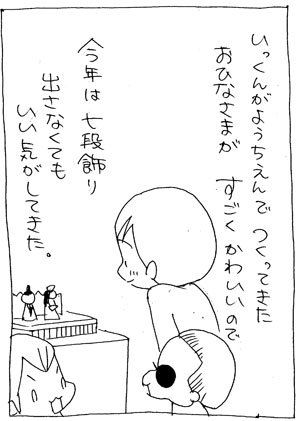 いっくんがようちえんで つくってきた
おひなさまが すごく かわいいので
今年は 七段飾り
出さなくても
いい気がしてきた。